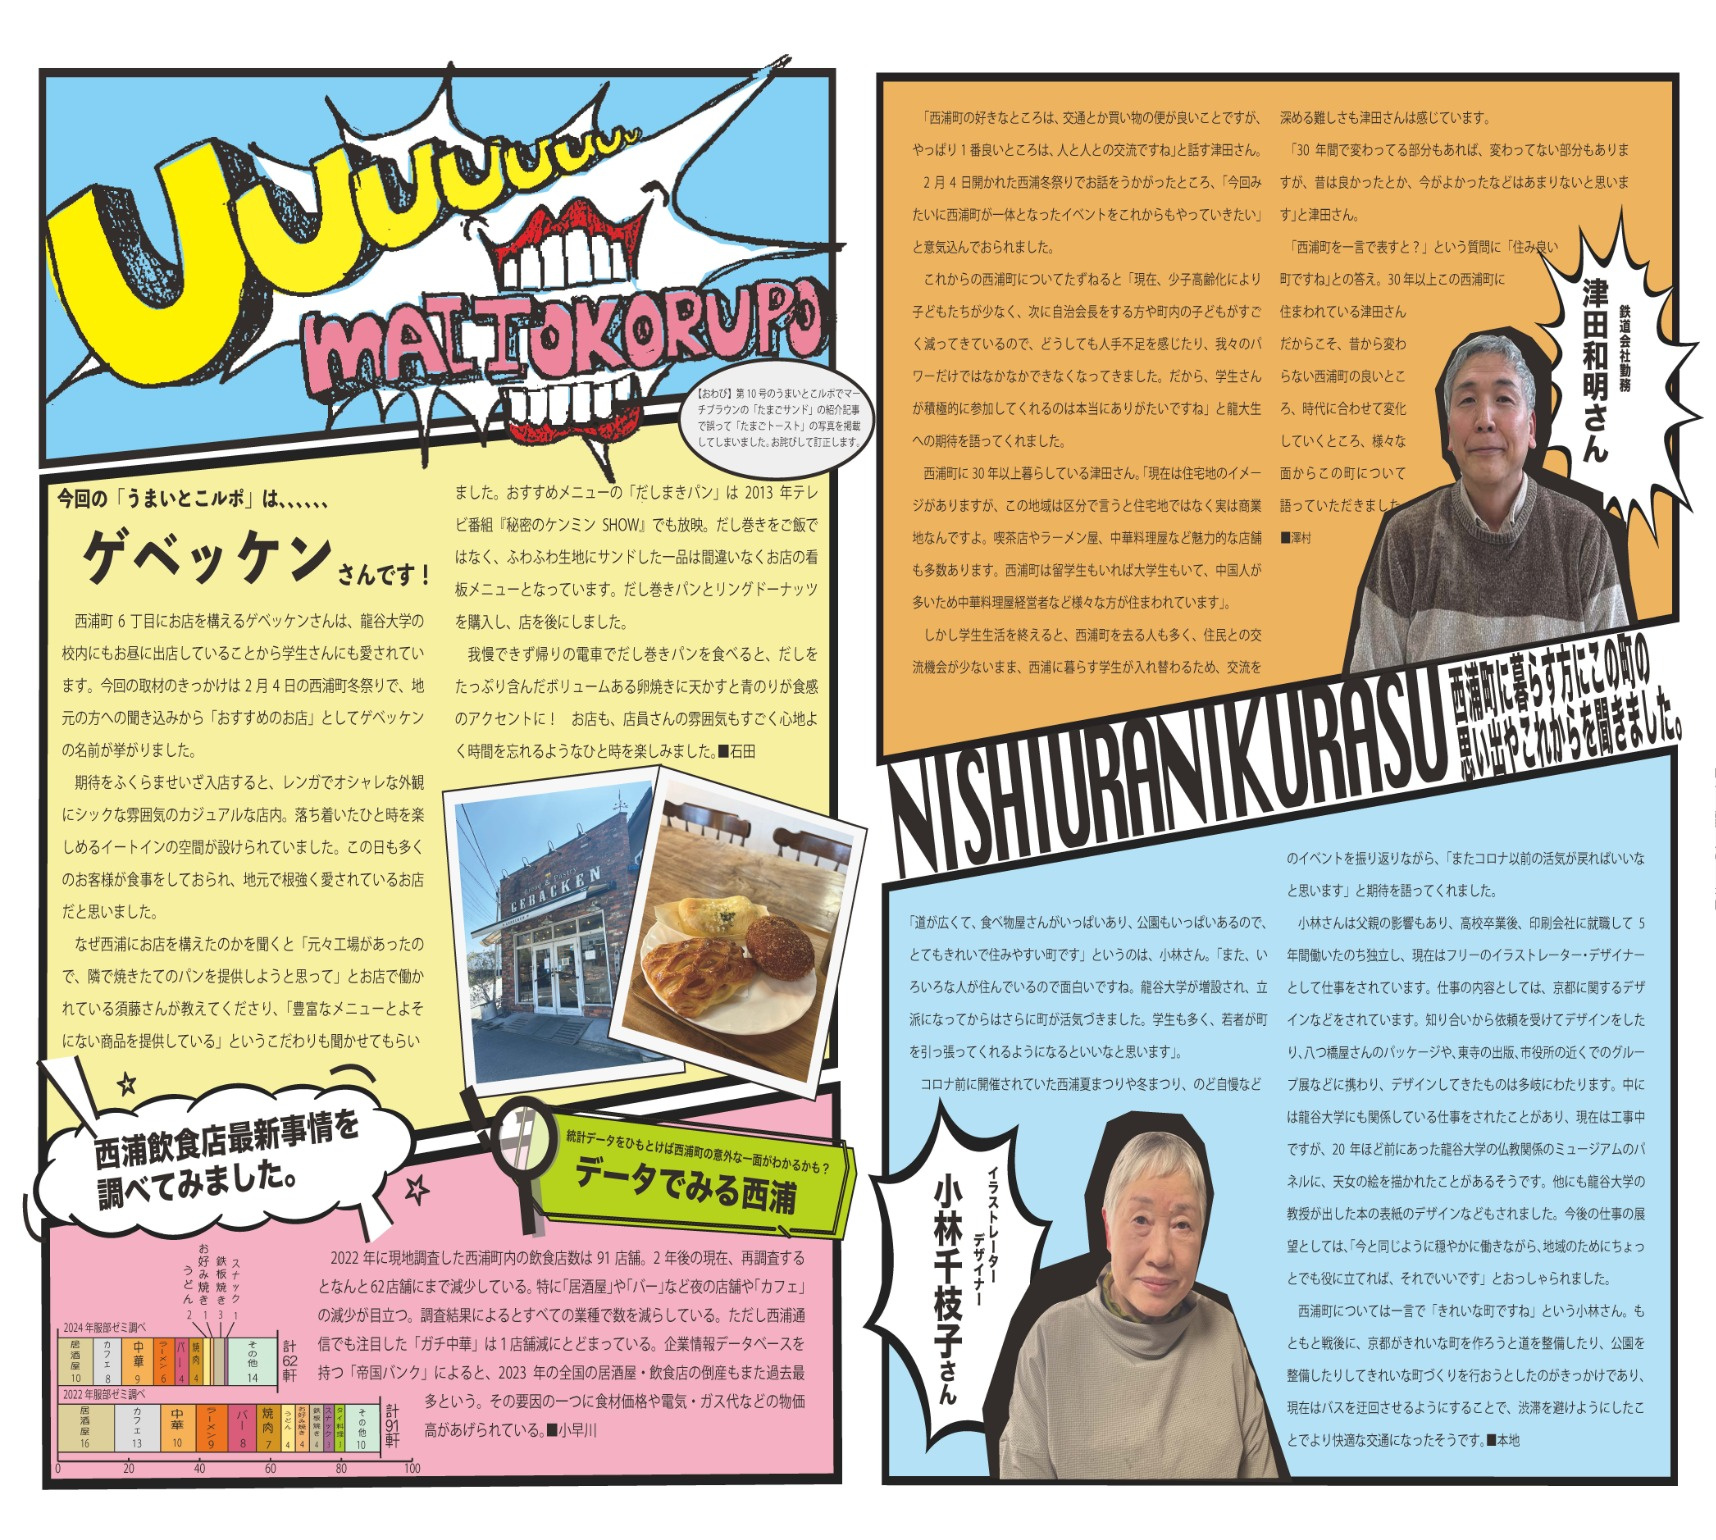 Uuuuuuuuuu
MAITOKORUPO
【おわび】第10号のうまいとこルポでマー
チブラウンの「たまごサンド」の紹介記事
で誤って「たまごトースト」の写真を掲載
してしまいました。お詫びして訂正します。
今回の「うまいとこルポ」は、、、、、、
ゲベッケン
さんです！
西浦町6丁目にお店を構えるゲベッケンさんは、龍谷大学の
校内にもお昼に出店していることから学生さんにも愛されてい
ます。今回の取材のきっかけは2月4日の西浦町冬祭りで、地
元の方への聞き込みから「おすすめのお店」としてゲベッケン
の名前が挙がりました。
期待をふくらませいざ入店すると、レンガでオシャレな外観
にシックな雰囲気のカジュアルな店内。落ち着いたひと時を楽
しめるイートインの空間が設けられていました。この日も多く
のお客様が食事をしておられ、地元で根強く愛されているお店
だと思いました。
なぜ西浦にお店を構えたのかを聞くと「元々工場があったの
で、隣で焼きたてのパンを提供しようと思って」とお店で働か
れている須藤さんが教えてくださり、「豊富なメニューとよそ
にない商品を提供している」というこだわりも聞かせてもらい
ました。おすすめメニューの「だしまきパン」は2013年テレ
ビ番組『秘密のケンミンSHOW』でも放映。だし巻きをご飯で
はなく、ふわふわ生地にサンドした一品は間違いなくお店の看
板メニューとなっています。だし巻きパンとリングドーナッツ
を購入し、店を後にしました。
我慢できず帰りの電車でだし巻きパンを食べると、だしを
たっぷり含んだボリュームある卵焼きに天かすと青のりが食感
のアクセントに！　お店も、店員さんの雰囲気もすごく心地よ
く時間を忘れるようなひと時を楽しみました。■石田
GEBACKEN
西浦飲食店最新事情を
調べてみました。
統計データをひもとけば西浦町の意外な一面がわかるかも？
データでみる西浦
2022年に現地調査した西浦町内の飲食店数は91店舗。2年後の現在、再調査する
となんと62店舗にまで減少している。特に「居酒屋」や「バー」など夜の店舗や「カフェ」
の減少が目立つ。調査結果によるとすべての業種で数を減らしている。ただし西浦通
信でも注目した「ガチ中華」は1店舗減にとどまっている。企業情報データベースを
持つ「帝国バンク」によると、2023年の全国の居酒屋・飲食店の倒産もまた過去最
多という。その要因の一つに食材価格や電気・ガス代などの物価
高があげられている。■小早川
うどん 2
お好み焼き 1
鉄板焼き 3
スナック 1
2024年服部ゼミ調べ
居酒屋 10
カフェ 8
中華 9
ラーメン 6
バー 4
焼肉 4
その他 14
計62軒
2022年服部ゼミ調べ
居酒屋 16
カフェ 13
中華 10
ラーメン 9
バー 8
焼肉 7
うどん 4
お好み焼き 4
鉄板焼き 4
スナック 3
タイ料理
その他 10
計91軒
0 20 40 60 80 100
「西浦町の好きなところは、交通とか買い物の便が良いことですが、
やっぱり1番良いところは、人と人との交流ですね」と話す津田さん。
2月4日開かれた西浦冬祭りでお話をうかがったところ、「今回み
たいに西浦町が一体となったイベントをこれからもやっていきたい」
と意気込んでおられました。
これからの西浦町についてたずねると「現在、少子高齢化により
子どもたちが少なく、次に自治会長をする方や町内の子どもがすご
く減ってきているので、どうしても人手不足を感じたり、我々のパ
ワーだけではなかなかできなくなってきました。だから、学生さん
が積極的に参加してくれるのは本当にありがたいですね」と龍大生
への期待を語ってくれました。
西浦町に30年以上暮らしている津田さん。「現在は住宅地のイメー
ジがありますが、この地域は区分で言うと住宅地ではなく実は商業
地なんですよ。喫茶店やラーメン屋、中華料理屋など魅力的な店舗
も多数あります。西浦町は留学生もいれば大学生もいて、中国人が
多いため中華料理屋経営者など様々な方が住まわれています」。
しかし学生生活を終えると、西浦町を去る人も多く、住民との交
流機会が少ないまま、西浦に暮らす学生が入れ替わるため、交流を
深める難しさも津田さんは感じています。
「30年間で変わってる部分もあれば、変わってない部分もありま
すが、昔は良かったとか、今がよかったなどはあまりないと思いま
す」と津田さん。
「西浦町を一言で表すと？」という質問に「住み良い
町ですね」との答え。30年以上この西浦町に
住まわれている津田さん
だからこそ、昔から変わ
らない西浦町の良いとこ
ろ、時代に合わせて変化
していくところ、様々な
面からこの町について
語っていただきました。
■澤村
鉄道会社勤務
津田和明さん
NISHIURANIKURASU
西浦町に暮らす方にこの町の
思い出やこれからを聞きました。
「道が広くて、食べ物屋さんがいっぱいあり、公園もいっぱいあるので、
とてもきれいで住みやすい町です」というのは、小林さん。「また、い
ろいろな人が住んでいるので面白いですね。龍谷大学が増設され、立
派になってからはさらに町が活気づきました。学生も多く、若者が町
を引っ張ってくれるようになるといいなと思います」。
コロナ前に開催されていた西浦夏まつりや冬まつり、のど自慢など
のイベントを振り返りながら、「またコロナ以前の活気が戻ればいいな
と思います」と期待を語ってくれました。
小林さんは父親の影響もあり、高校卒業後、印刷会社に就職して5
年間働いたのち独立し、現在はフリーのイラストレーター・デザイナー
として仕事をされています。仕事の内容としては、京都に関するデザ
インなどをされています。知り合いから依頼を受けてデザインをした
り、八つ橋屋さんのパッケージや、東寺の出版、市役所の近くでのグルー
プ展などに携わり、デザインしてきたものは多岐にわたります。中に
は龍谷大学にも関係している仕事をされたことがあり、現在は工事中
ですが、20年ほど前にあった龍谷大学の仏教関係のミュージアムのパ
ネルに、天女の絵を描かれたことがあるそうです。他にも龍谷大学の
教授が出した本の表紙のデザインなどもされました。今後の仕事の展
望としては、「今と同じように穏やかに働きながら、地域のためにちょっ
とでも役に立てれば、それでいいです」とおっしゃられました。
西浦町については一言で「きれいな町ですね」という小林さん。も
ともと戦後に、京都がきれいな町を作ろうと道を整備したり、公園を
整備したりしてきれいな町づくりを行おうとしたのがきっかけであり、
現在はバスを迂回させるようにすることで、渋滞を避けようにしたこ
とでより快適な交通になったそうです。■本地
イラストレーター
デザイナー
小林千枝子さん